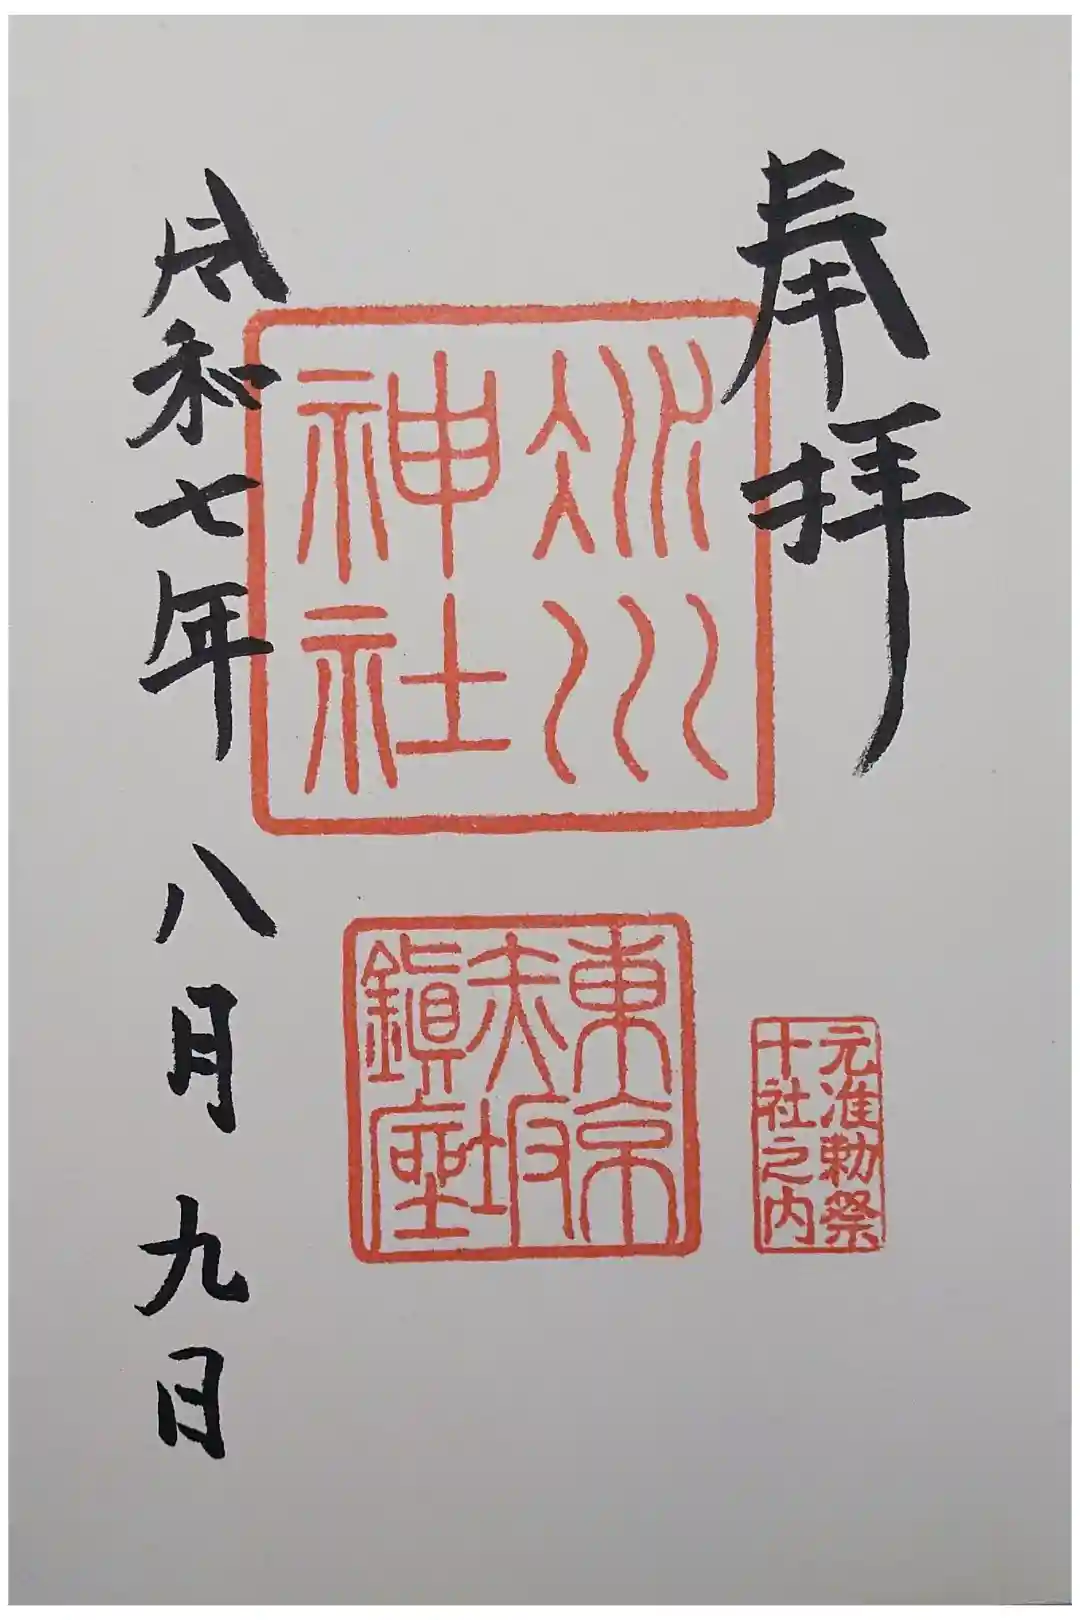 奉拝
氷川
神社
元准勅祭
十社之内
東京
赤坂
鎭座
令和七年 八月九日